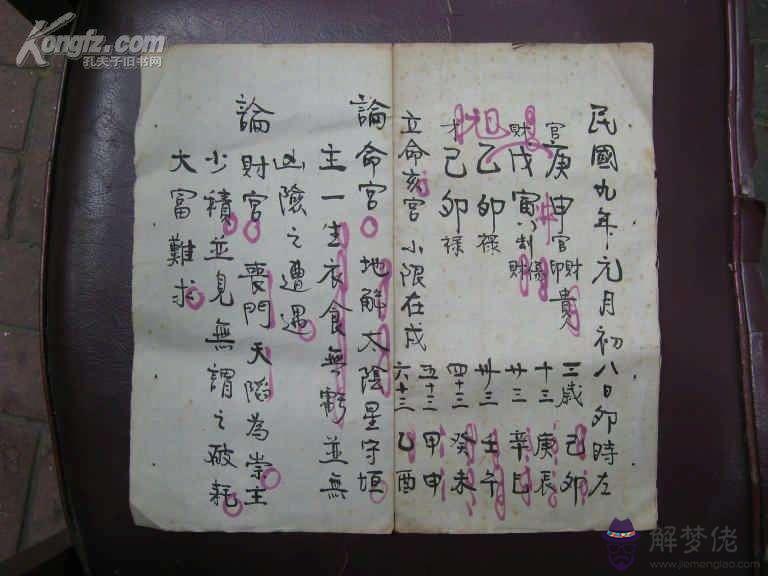 Kongfz.com
孔夫子旧书网
民國九年元月初八日卯時左
官庚申官印財貴
財戊寅
乙卯祿
才己卯祿
二歲己卯
十三庚辰
廿三辛巳
卅三壬午
四十三癸未
五十三甲申
六十三乙酉
立命亥宮小限在戌
論命宮地解太陰星守垣
主一生衣食無虧並無
凶險之遭遇
論財宮喪門天陷為崇主
少積並見無謂之破耗
大富難求
解梦佬
www.jiemenglao.com